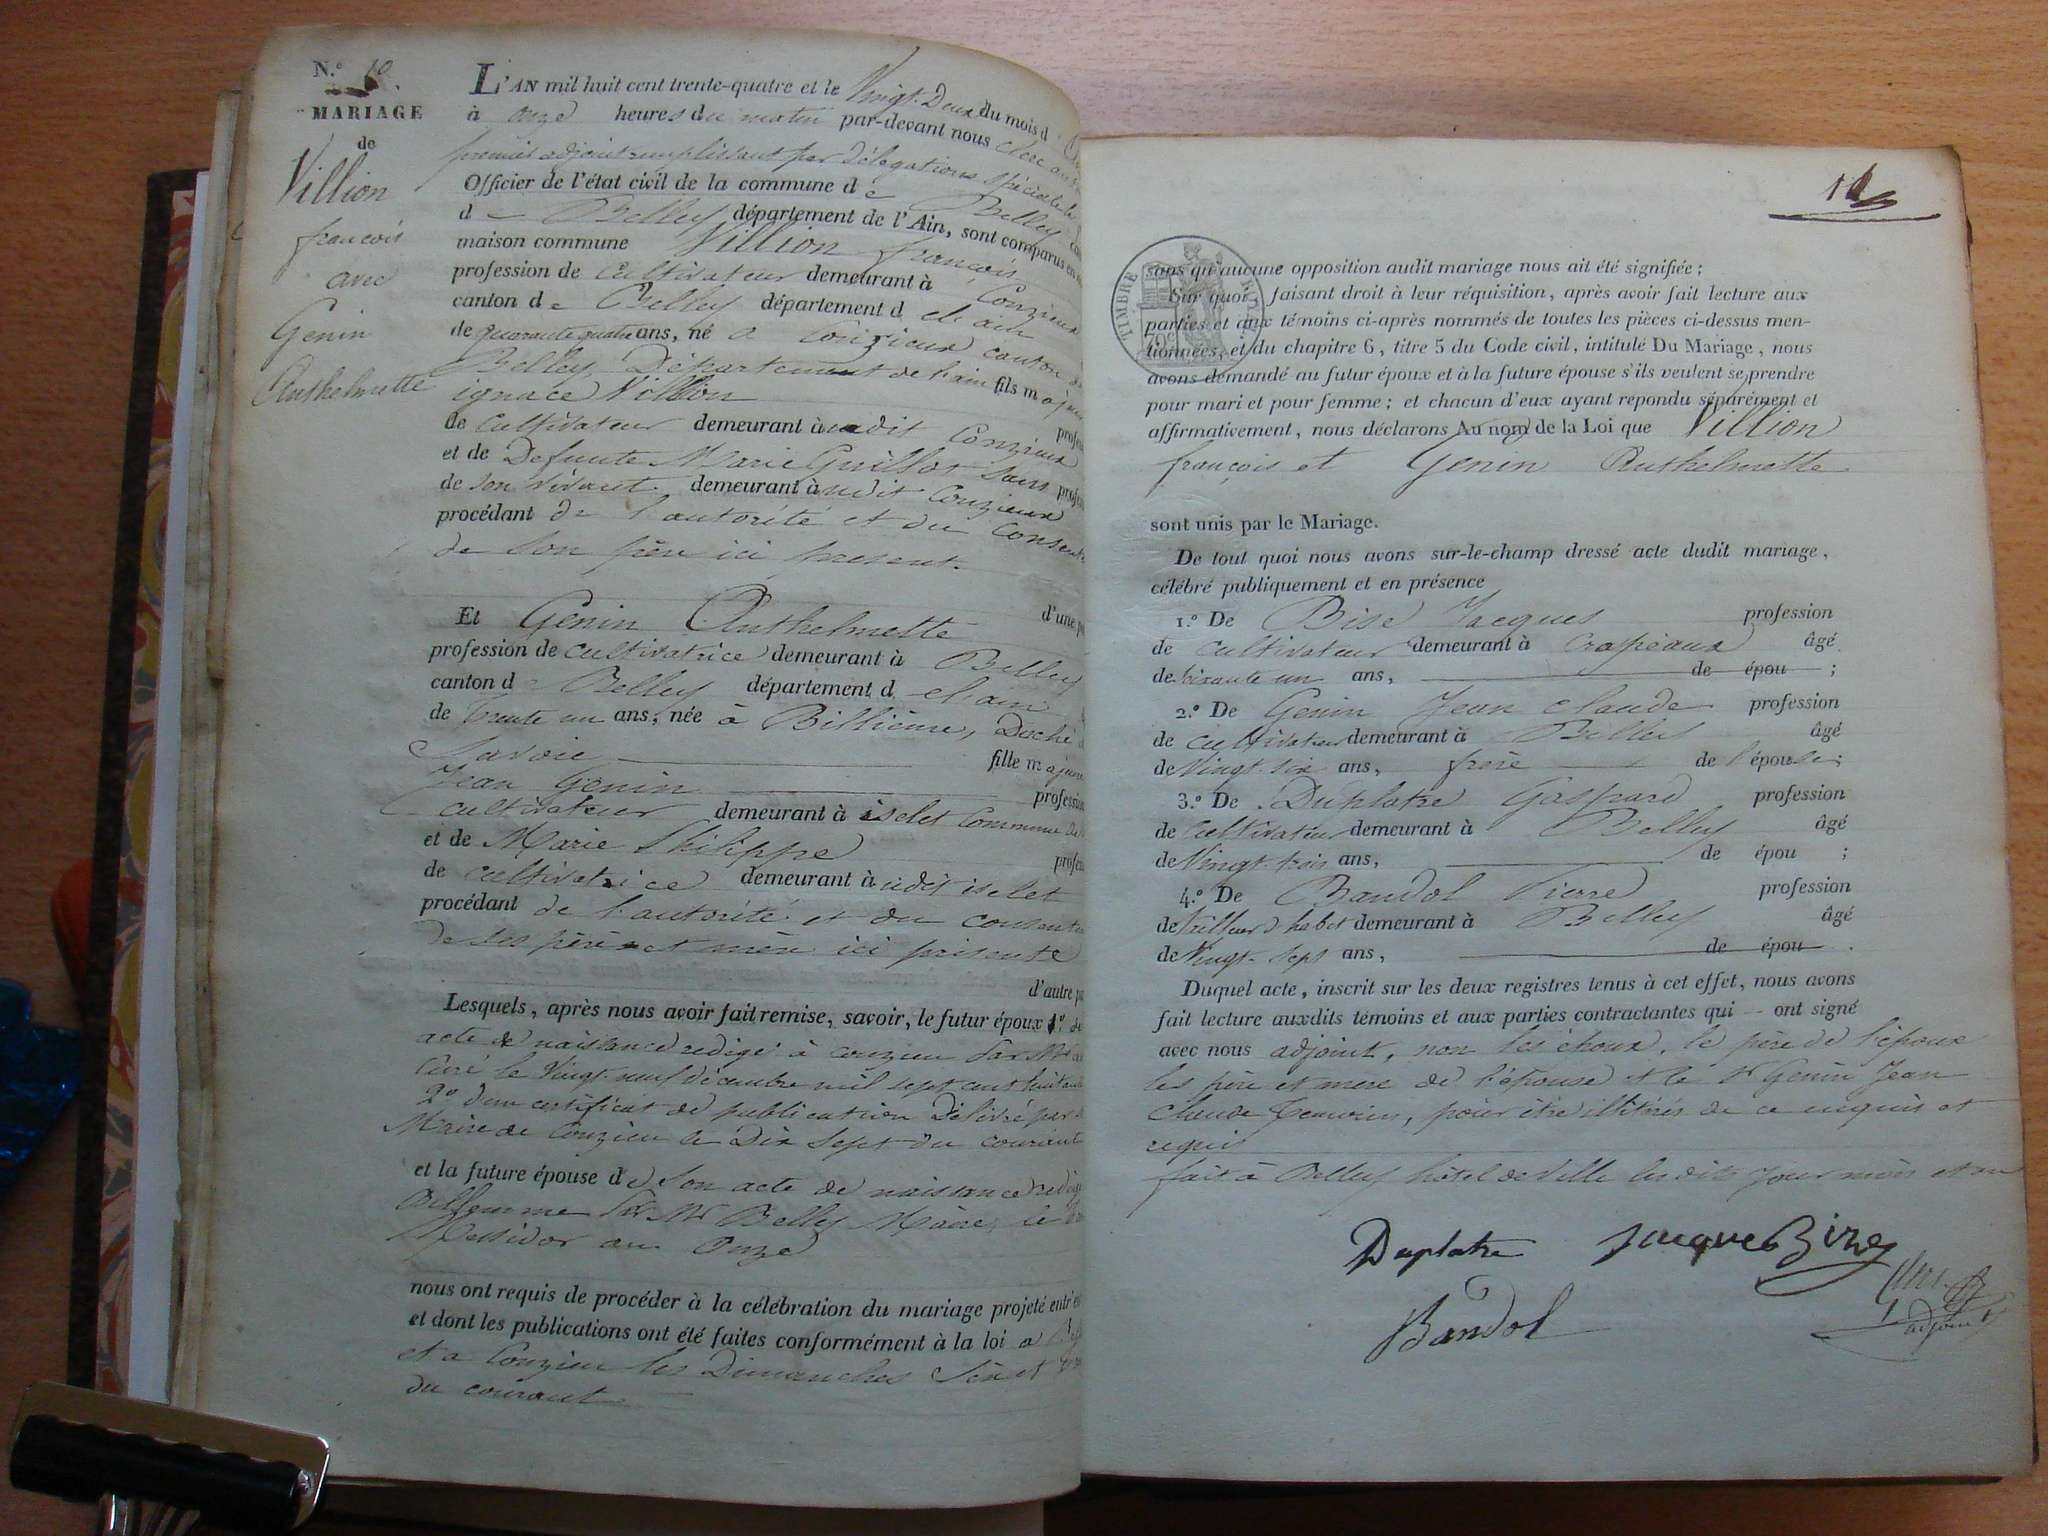 N.º 10
MARIAGE
de
Villion
françois
avec
Genin
Anthelmette
L'AN mil huit cent trente-quatre et le Vingt-Deux du mois d
à onze heures du matin par-devant nous
premier adjoint remplissant par délégation spéciale
Officier de l'état civil de la commune de Belley
de Belley département de l'Ain, sont comparus en
maison commune Villion françois
profession de cultivateur demeurant à Conzieux
canton de Belley département de l'ain
de quarante quatre ans, né à Conzieux canton de
Belley, Département de l'ain fils majeur
ignace Villion
de cultivateur demeurant à udit Conzieux
et de Defunte Marie Guillot Sans
de son vivant demeurant à udit Conzieux
procédant de l'autorité et du Consent
de son père ici present.
d'une pa
Et Genin Anthelmette
profession de cultivatrice demeurant à Belley
canton de Belley département de l'ain
de trente un ans, née à Billième, Duché de
Savoie fille majeure
Jean Genin profession
cultivateur demeurant à iselet Commune de
et de Marie Philippe
de cultivatrice demeurant à udit iselet
procédant de l'autorité et du consente
de ses père et mère ici présents
d'autre pa
Lesquels, après nous avoir fait remise, savoir, le futur époux 1.º de
acte de naissance redigé à conzieu par Mr
Curé le Vingt neuf décembre mil sept cent huitante
2º d'un certificat de publication Délivré par
Maire de Conzieu le Dix Sept du courant
et la future épouse de Son acte de naissance redigé
par Mr Belly Maire, le
Messidor an Onze
nous ont requis de procéder à la célébration du mariage projeté entr'e
et dont les publications ont été faites conformément à la loi a
et a Conzieu les Dimanches Six et
du courant
TIMBRE ROYAL
70c
sans qu'aucune opposition audit mariage nous ait été signifiée ;
Sur quoi, faisant droit à leur réquisition, après avoir fait lecture aux
parties et aux témoins ci-après nommés de toutes les pièces ci-dessus men-
tionnées, et du chapitre 6, titre 5 du Code civil, intitulé Du Mariage, nous
avons demandé au futur époux et à la future épouse s'ils veulent se prendre
pour mari et pour femme ; et chacun d'eux ayant répondu séparément et
affirmativement, nous déclarons Au nom de la Loi que Villion
françois et Genin Anthelmette
sont unis par le Mariage.
De tout quoi nous avons sur-le-champ dressé acte dudit mariage,
célébré publiquement et en présence
1.º De Bise Jacques profession
de cultivateur demeurant à Crapéaux âgé
de soixante un ans, de épou ;
2.º De Genin Jean Claude profession
de cultivateur demeurant à Belley âgé
de Vingt-six ans, frère de l'épouse ;
3.º De Duplatre Gaspard profession
de cultivateur demeurant à Belley âgé
de Vingt-trois ans, de épou ;
4.º De Bandol Pierre profession
de tailleur d'habit demeurant à Belley âgé
de Vingt-sept ans, de épou .
Duquel acte, inscrit sur les deux registres tenus à cet effet, nous avons
fait lecture auxdits témoins et aux parties contractantes qui ont signé
avec nous adjoint, non les époux, le père de l'époux
les père et mere de l'épouse et le Sr Genin Jean
Claude pour être illitérés de ce enquis et
requis
fait à Belley hôtel de Ville les dits jour mois et an
Duplatre Jacques Bize
Bandol
adjoint